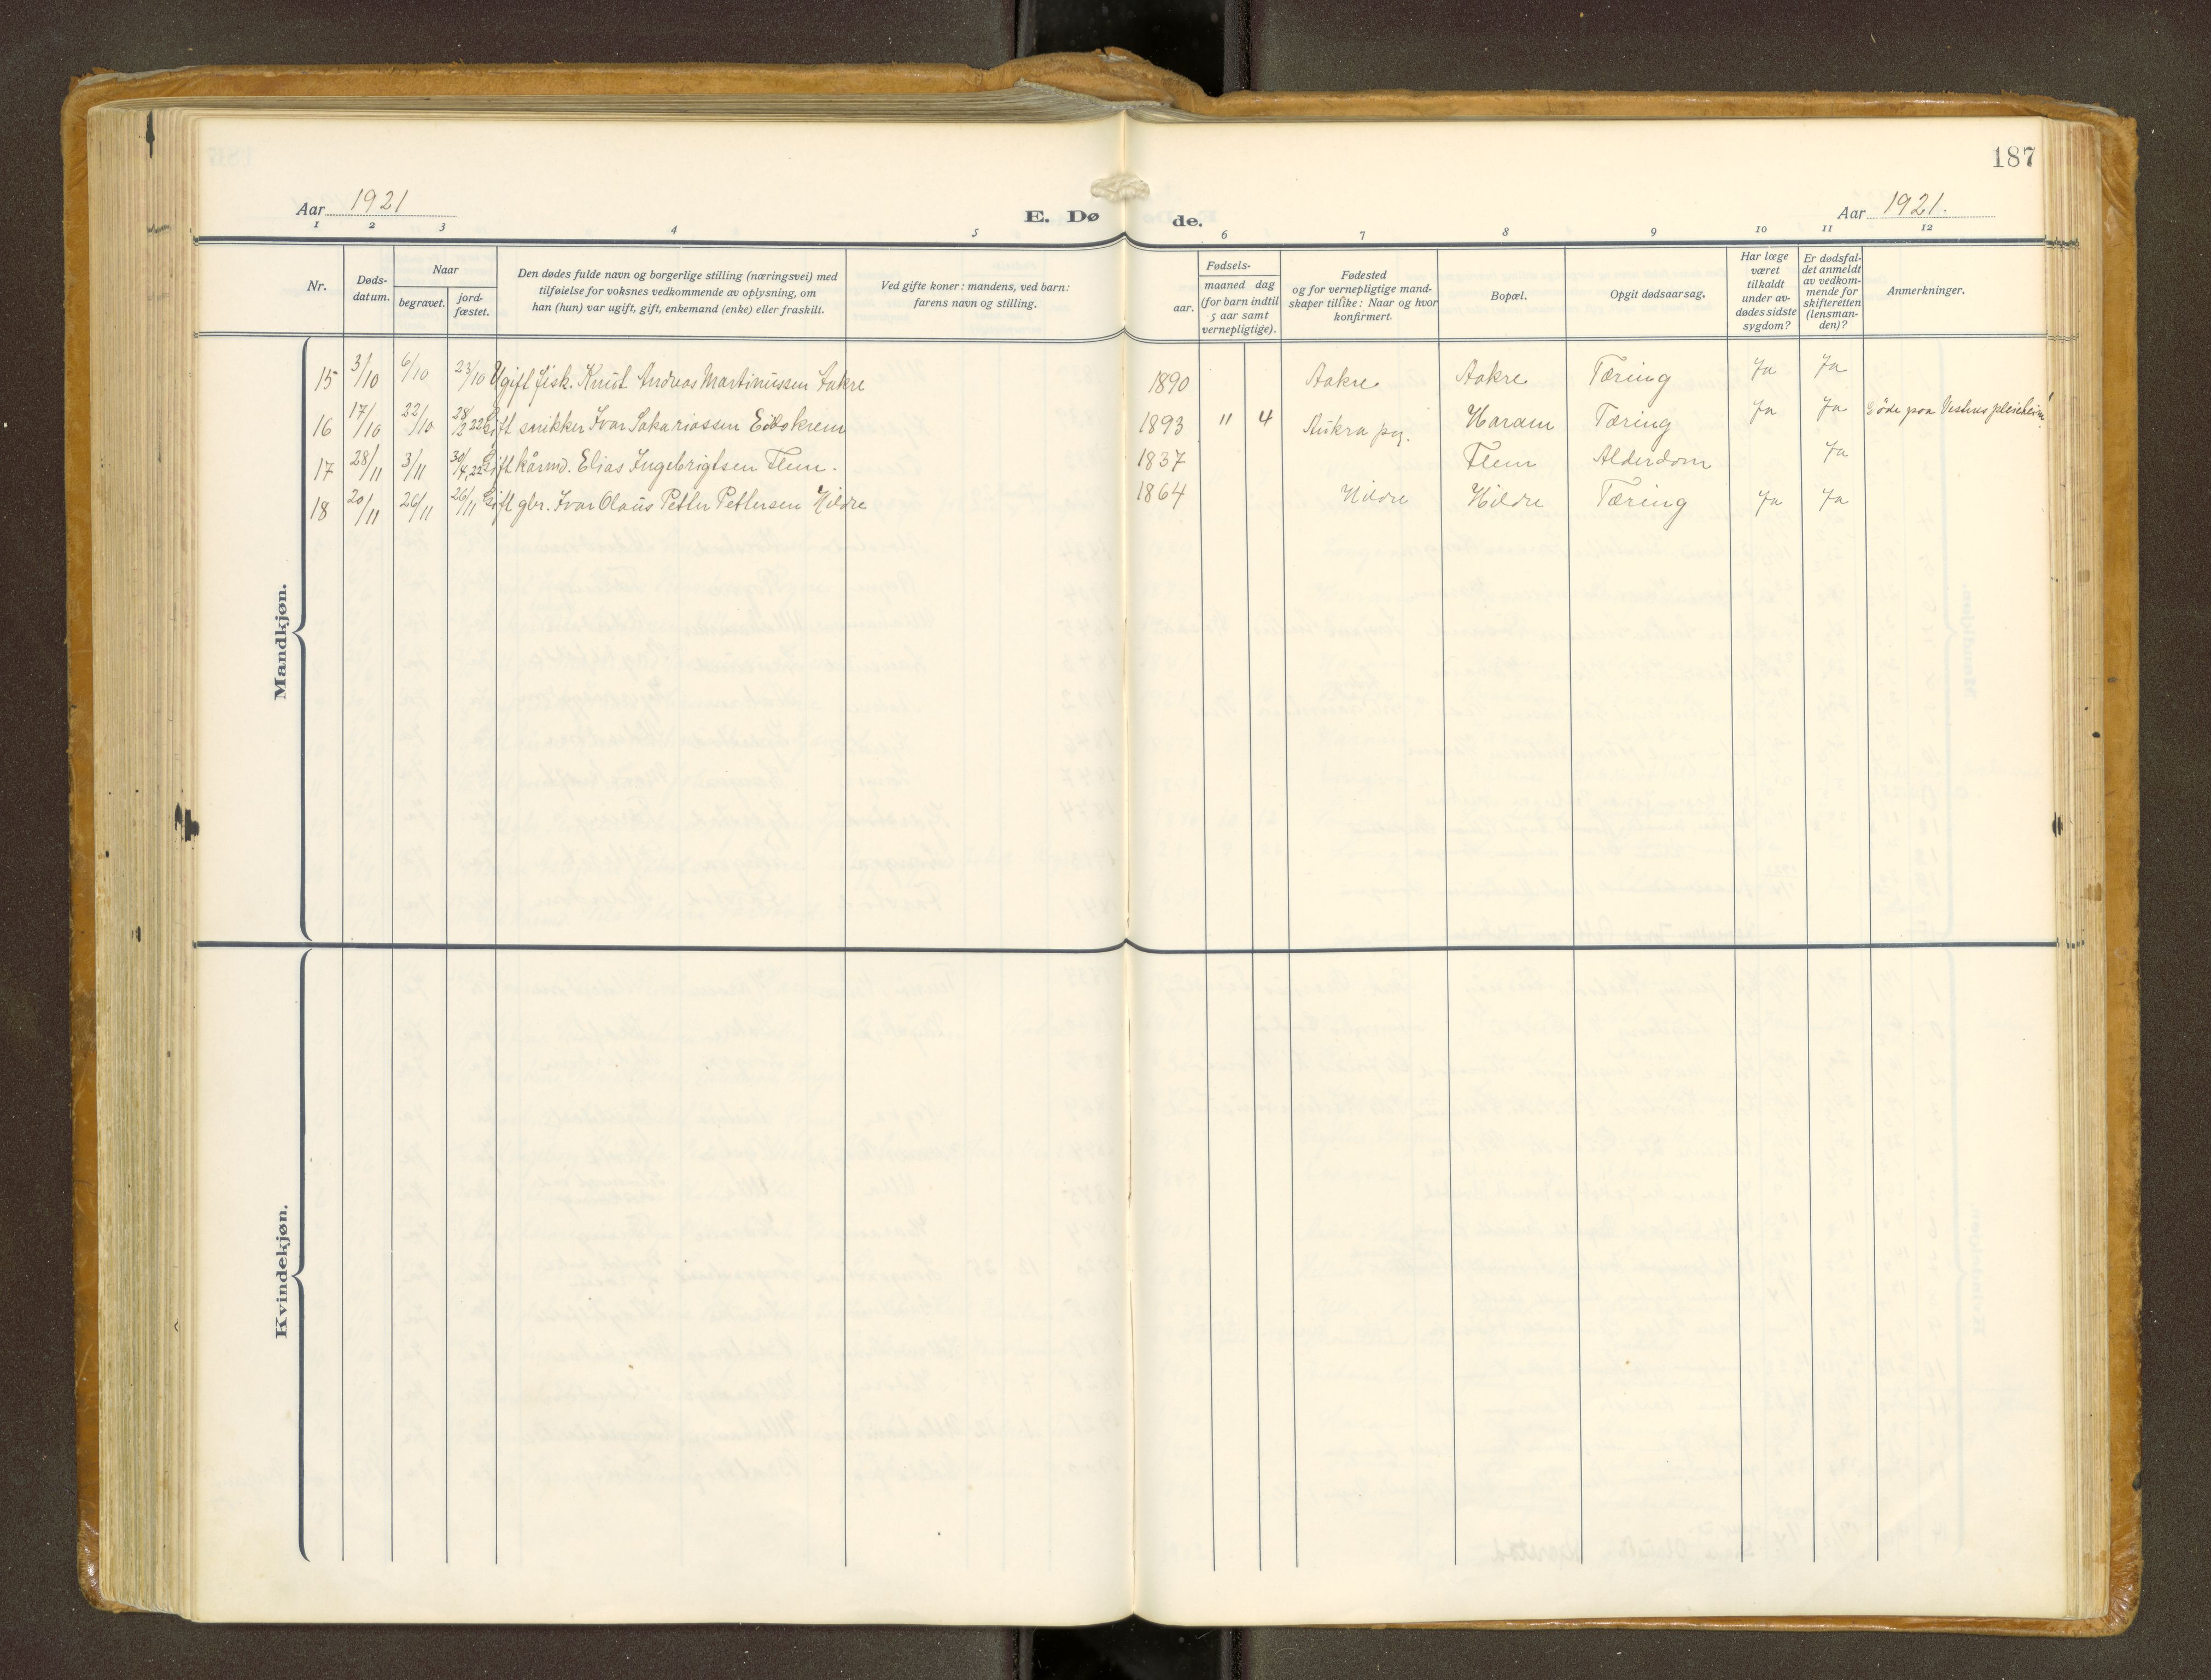 187
Aar 1921
E. Døde.
Aar 1921.
1 2 3 4 5 6 7 8 9 10 11 12
Nr.
Døds-
datum.
Naar
begravet.
jord-
fæstet.
Den dødes fulde navn og borgerlige stilling (næringsvei) med
tilføielse for voksnes vedkommende av oplysning, om
han (hun) var ugift, gift, enkemand (enke) eller fraskilt.
Ved gifte koner: mandens, ved barn:
farens navn og stilling.
Fødsels-
aar.
maaned dag
(for barn indtil
5 aar samt
vernepligtige).
Fødested
og for vernepligtige mand-
skaper tillike: Naar og hvor
konfirmert.
Bopæl.
Opgit dødsaarsag.
Har læge
været
tilkaldt
under av-
dødes sidste
sygdom?
Er dødsfal-
det anmeldt
av vedkom-
mende for
skifteretten
(lensman-
den)?
Anmerkninger.
Mandkjøn.
15 3/10 6/10 23/10 Ugift fisk. Knut Andreas Martinussen Aakre 1890 Aakre Aakre Tæring Ja Ja
16 17/10 22/10 28/2 22 Gift snikker Ivar Sakariassen Eidskrem 1893 11 4 Aukra pg. Haram Tæring Ja Ja Döde paa Vestnes pleieheim!
17 28/11 3/11 30/4 22 Gift kårmd. Elias Ingebrigtsen Flem. 1837 Flem Alderdom Ja
18 20/11 26/11 26/11 Gift gbr. Ivar Olaus Petter Pettersen Hildre 1864 Hildre Hildre Tæring Ja Ja
Kvindekjøn.